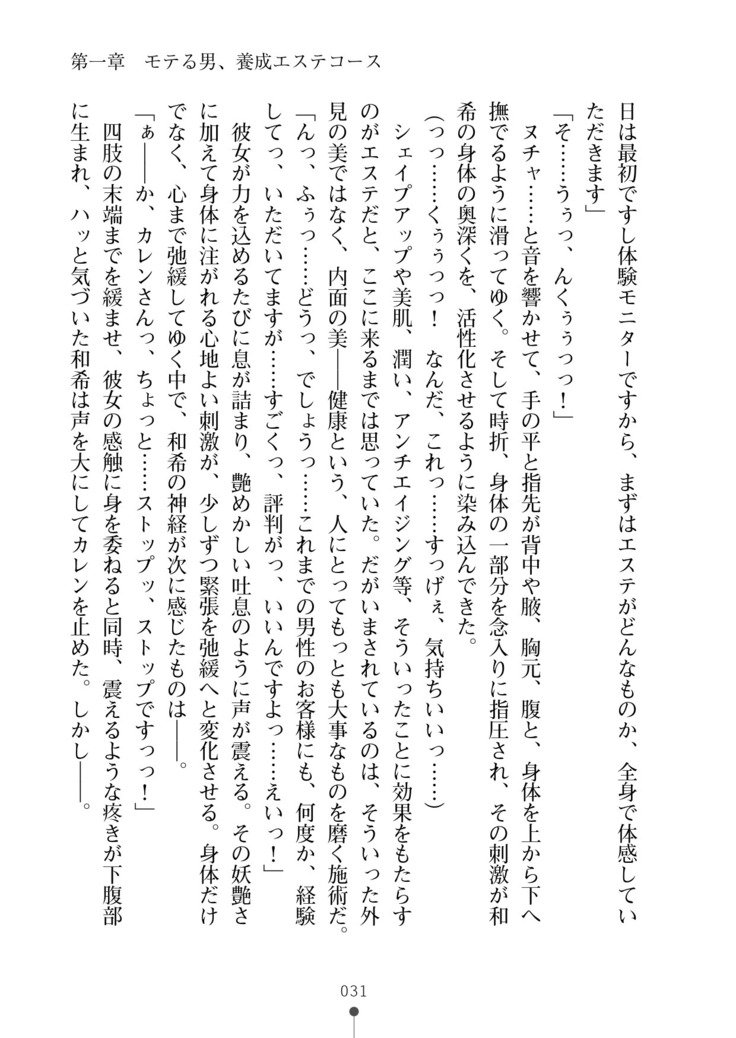 第一章　モテる男、養成エステコース
日は最初ですし体験モニターですから、まずはエステがどんなものか、全身で体感してい
ただきます」
「そ……うぅっ、んくぅぅっっ！」
　ヌチャ……と音を響かせて、手の平と指先が背中や腋、胸元、腹と、身体を上から下へ
撫でるように滑ってゆく。そして時折、身体の一部分を念入りに指圧され、その刺激が和
希の身体の奥深くを、活性化させるように染み込んできた。
（っっ……くぅぅっっ！　なんだ、これっ……すっげぇ、気持ちいいっ……）
　シェイプアップや美肌、潤い、アンチエイジング等、そういったことに効果をもたらす
のがエステだと、ここに来るまでは思っていた。だがいまされているのは、そういった外
見の美ではなく、内面の美――健康という、人にとってもっとも大事なものを磨く施術だ。
「んっ、ふぅっ……どうっ、でしょうっ……これまでの男性のお客様にも、何度か、経験
してっ、いただいてますが……すごくっ、評判がっ、いいんですよっ……えいっ！」
　彼女が力を込めるたびに息が詰まり、艶めかしい吐息のように声が震える。その妖艶さ
に加えて身体に注がれる心地よい刺激が、少しずつ緊張を弛緩へと変化させる。身体だけ
でなく、心まで弛緩してゆく中で、和希の神経が次に感じたものは――。
「ぁ――か、カレンさんっ、ちょっと……ストップッ、ストップですっっ！」
　四肢の末端までを緩ませ、彼女の感触に身を委ねると同時、震えるような疼きが下腹部
に生まれ、ハッと気づいた和希は声を大にしてカレンを止めた。しかし――。
031